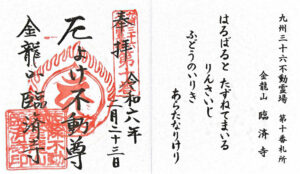 九州三十六不動霊場
第十番札所
金龍山 臨済寺
はるばると たずねてまいる
りんざいじ
ふどうのいりき
あらたなりけり
奉拝 令和六年
二月二十三日
厄よけ不動尊
金龍山 臨済寺